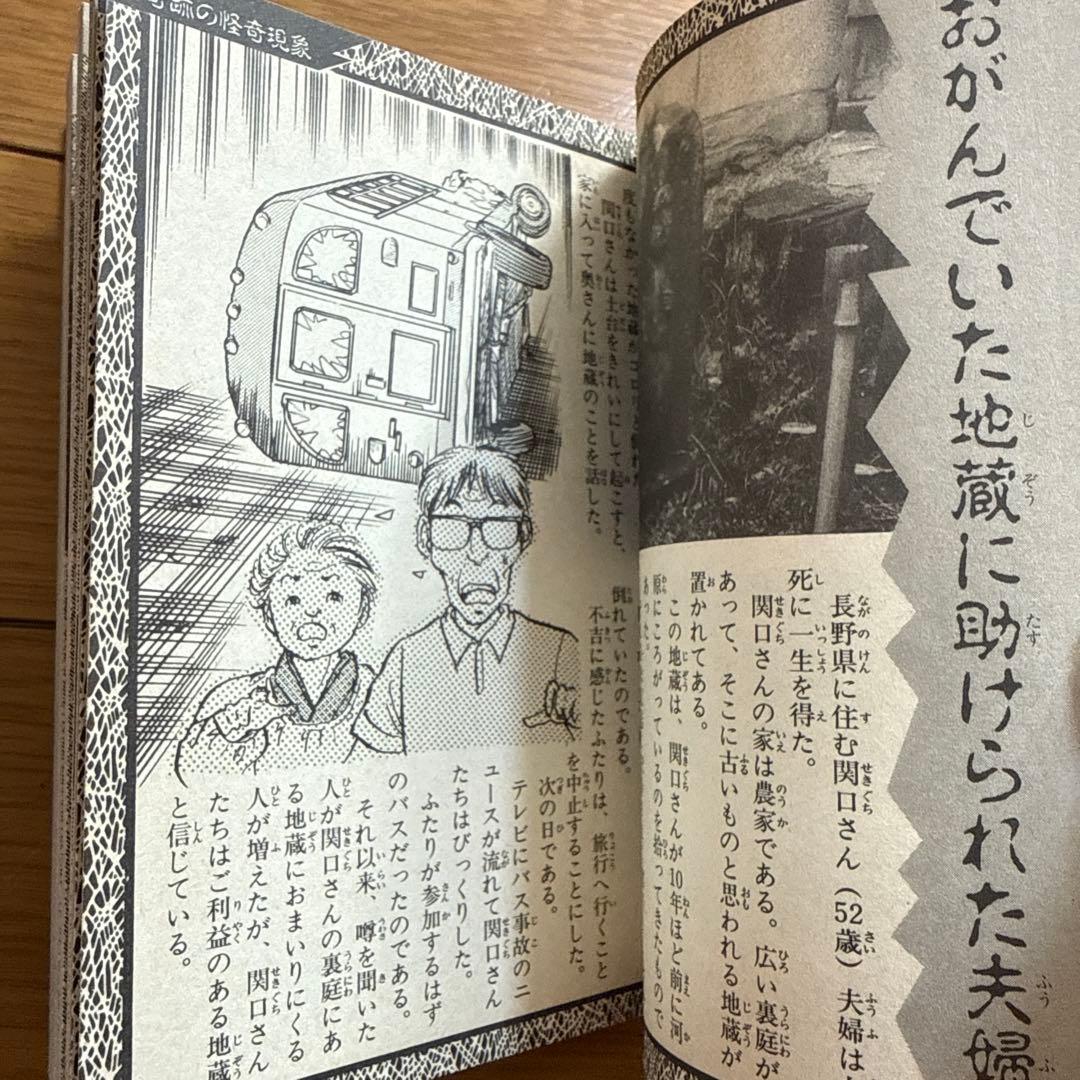 おがんでいた地蔵に助けられた夫婦
長野県に住む関口さん（52歳）夫婦は、
死に一生を得た。
関口さんの家は農家である。広い裏庭が
あって、そこに古いものと思われる地蔵が
置かれてある。
この地蔵は、関口さんが10年ほど前に河
原にころがっているのを拾ってきたもので
あった。
の怪奇現象
度もなかった地蔵が
関口さんは土台をきれいにして起こすと、
家に入って奥さんに地蔵のことを話した。
倒れていたのである。
不吉に感じたふたりは、旅行へ行くこと
を中止することにした。
次の日である。
テレビにバス事故のニ
ュースが流れて関口さん
たちはびっくりした。
ふたりが参加するはず
のバスだったのである。
それ以来、噂を聞いた
人が関口さんの裏庭にあ
る地蔵におまいりにくる
人が増えたが、関口さん
たちはご利益のある地蔵
と信じている。